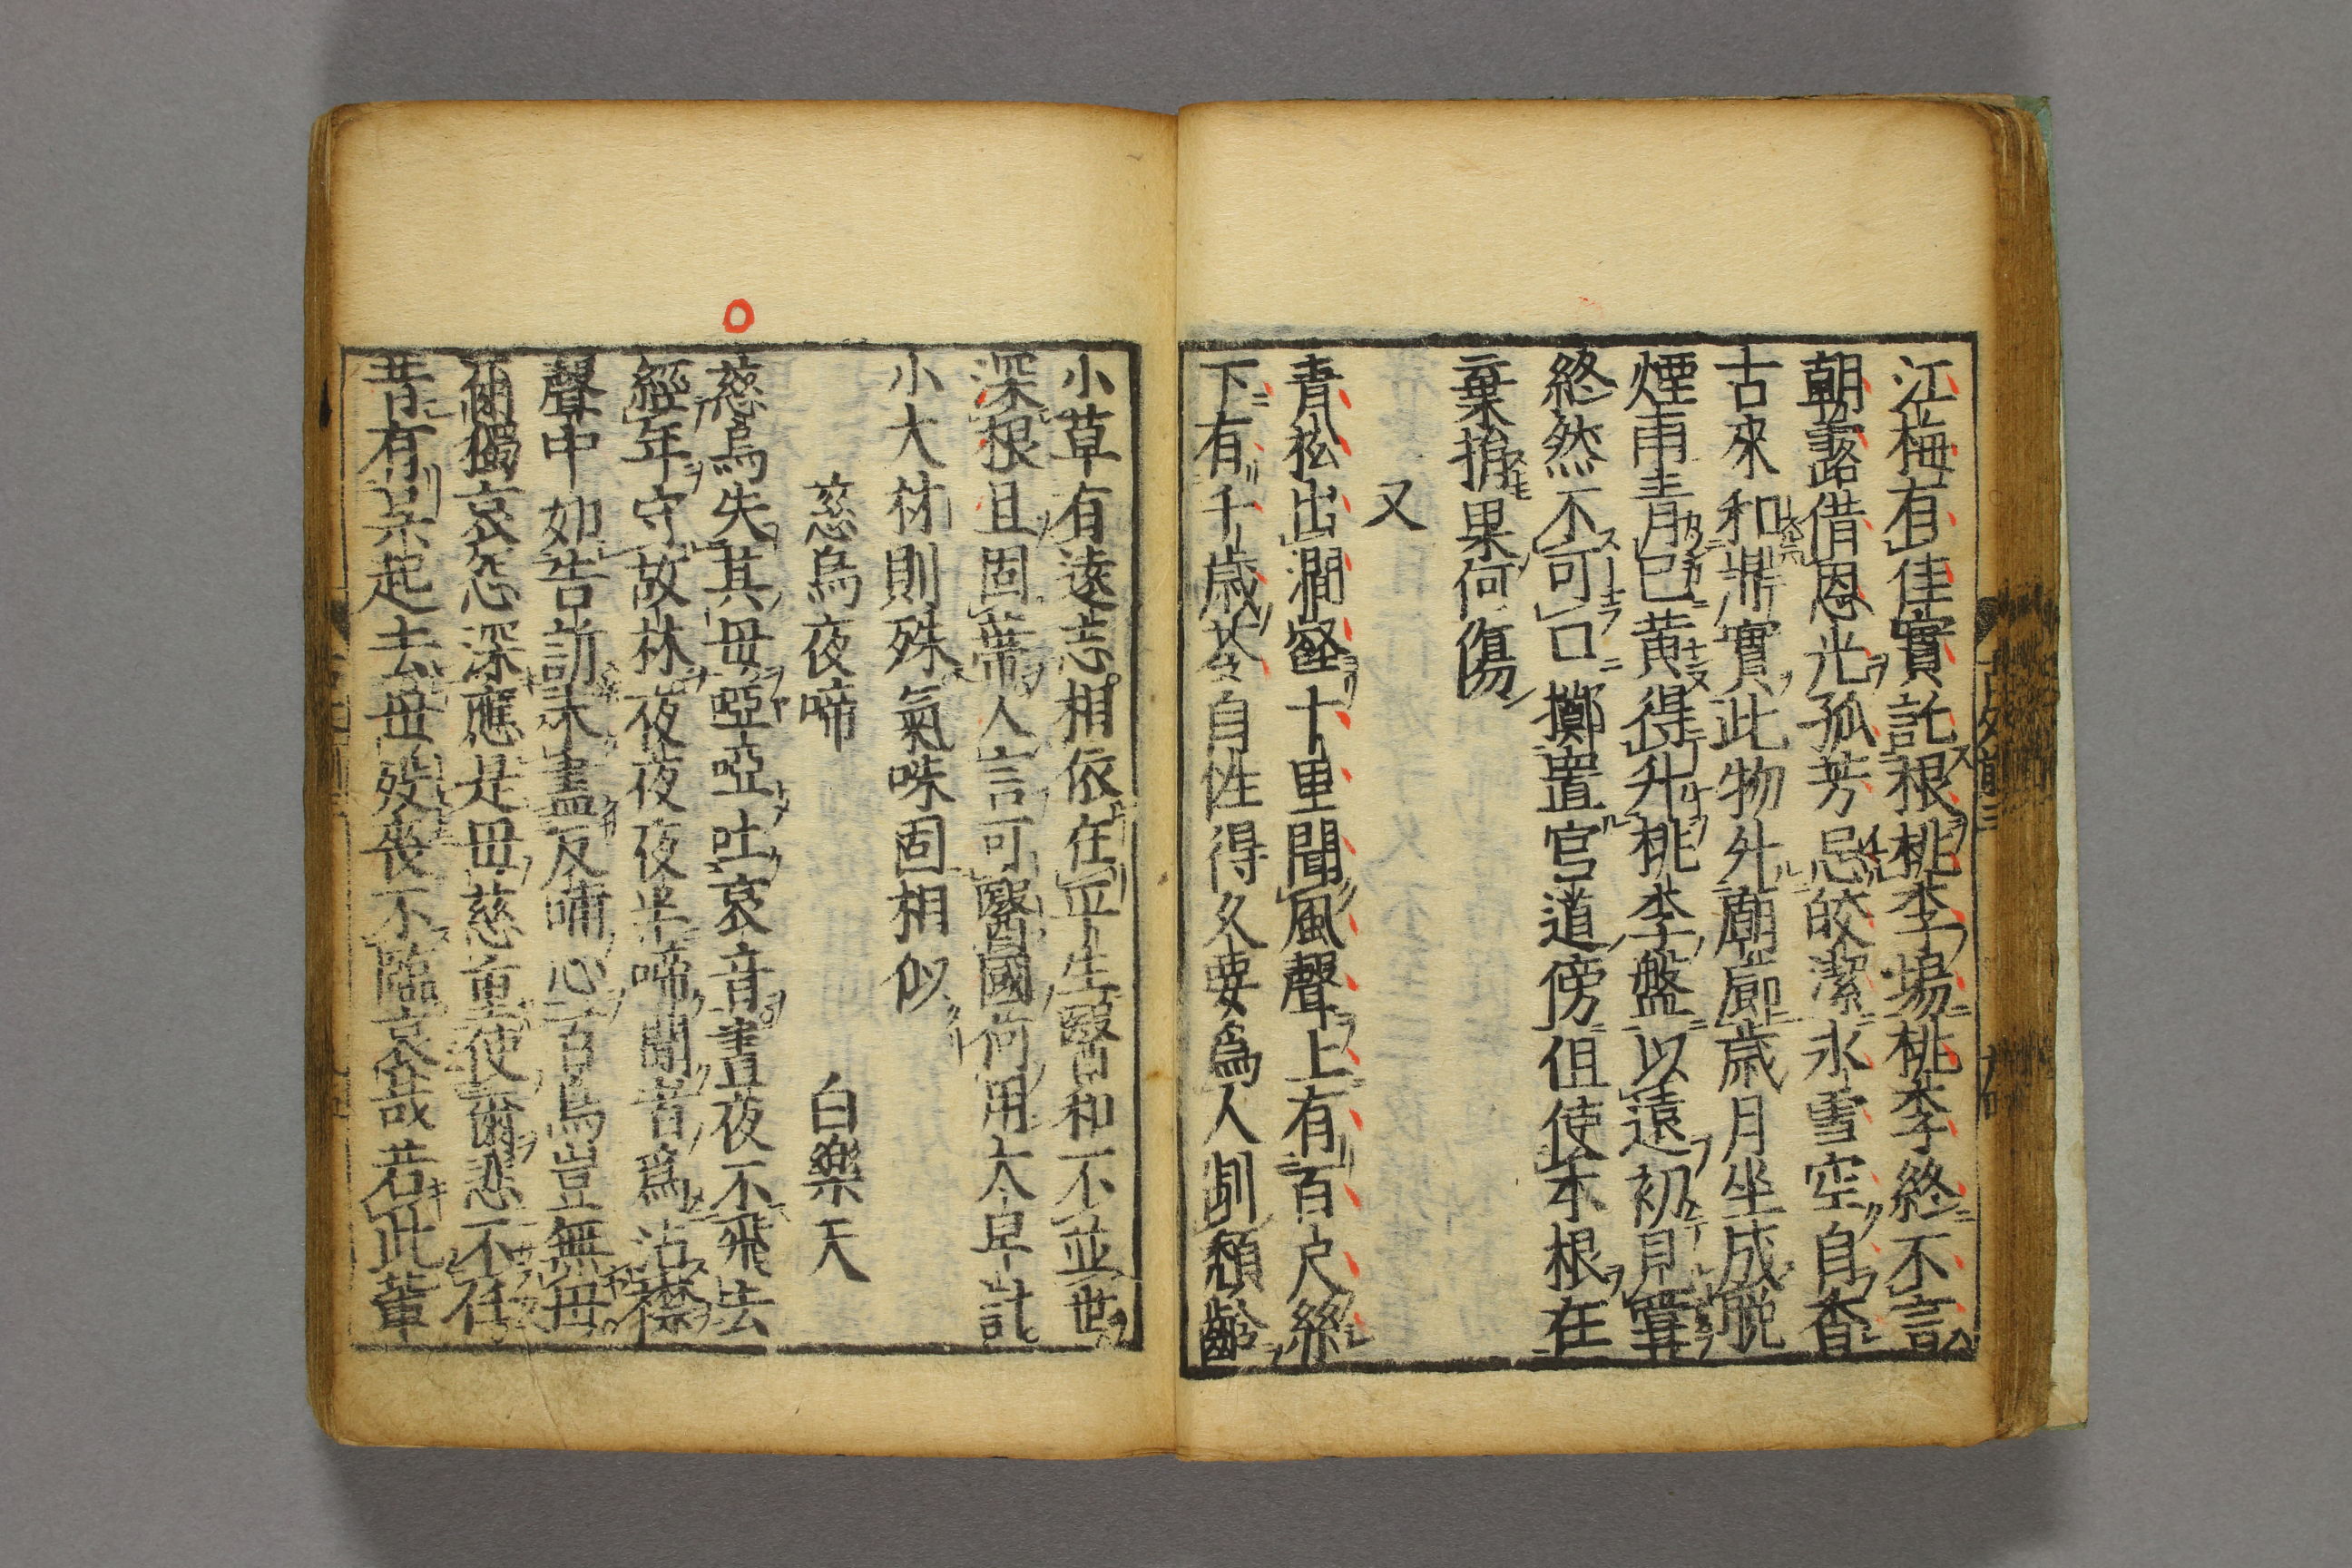 江梅有佳實託根桃李塲桃李終不言
朝露借恩光孤芳忌皎潔氷雪空自香
古來和鼎實此物外廟廊歳月坐成脱
煙雨青已黄得升桃李盤以遠初見嘗
終然不可口擲置官道傍但使本根在
棄捐果何傷
又
青松出澗壑十里聞風聲上有百尺絲
下有千歳苓自性得久要爲人制頽齡
小草有遠志相依在平生醫和不並世
深根且固蔕人言可醫國何用太早計
小大材則殊氣味固相似
慈烏夜啼
白樂天
慈烏失其母啞啞吐哀音晝夜不飛去
經年守故林夜夜夜半啼聞者爲沾襟
聲中如告訴未盡反哺心百鳥豈無母
爾獨哀怨深應是母慈重使爾悲不任
昔有吳起去母歿喪不臨哀哉若此輩